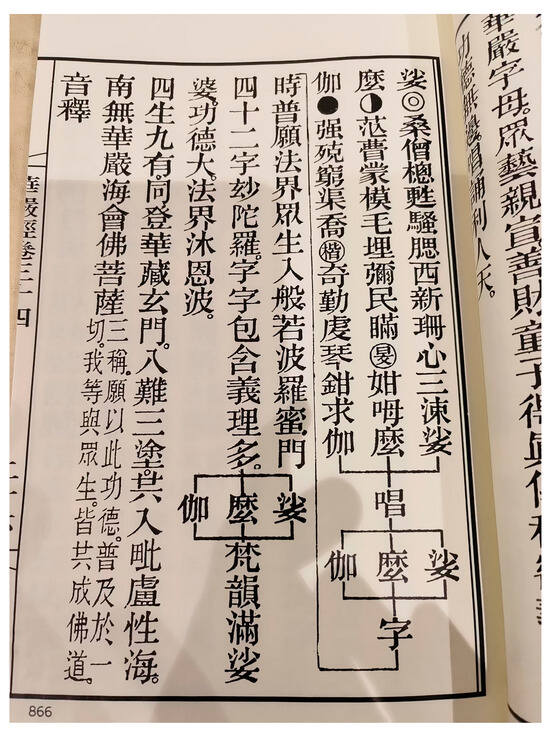 華嚴字母。眾藝親宣善財童子得真傳
功德無邊。唱誦利人天。
娑◎桑僧總甦騷腮西新珊心三洓娑
麼◑茫瞢蒙模毛埋彌民瞞姏呣麼
伽●强殑窮渠喬楷奇勤虔琴鉗求伽
唱
娑麼伽
字
時普願法界眾生入般若波羅蜜門
四十二字妙陀羅。字字包含義理多。娑麼伽梵韻滿娑
婆。功德大。法界沐恩波。
四生九有。同登華藏玄門。八難三塗。共入毗盧性海。
南無華嚴海會佛菩薩三稱。願以此功德。普及於一
切。我等與眾生。皆共成佛道。
音釋
華嚴經卷三十四
866